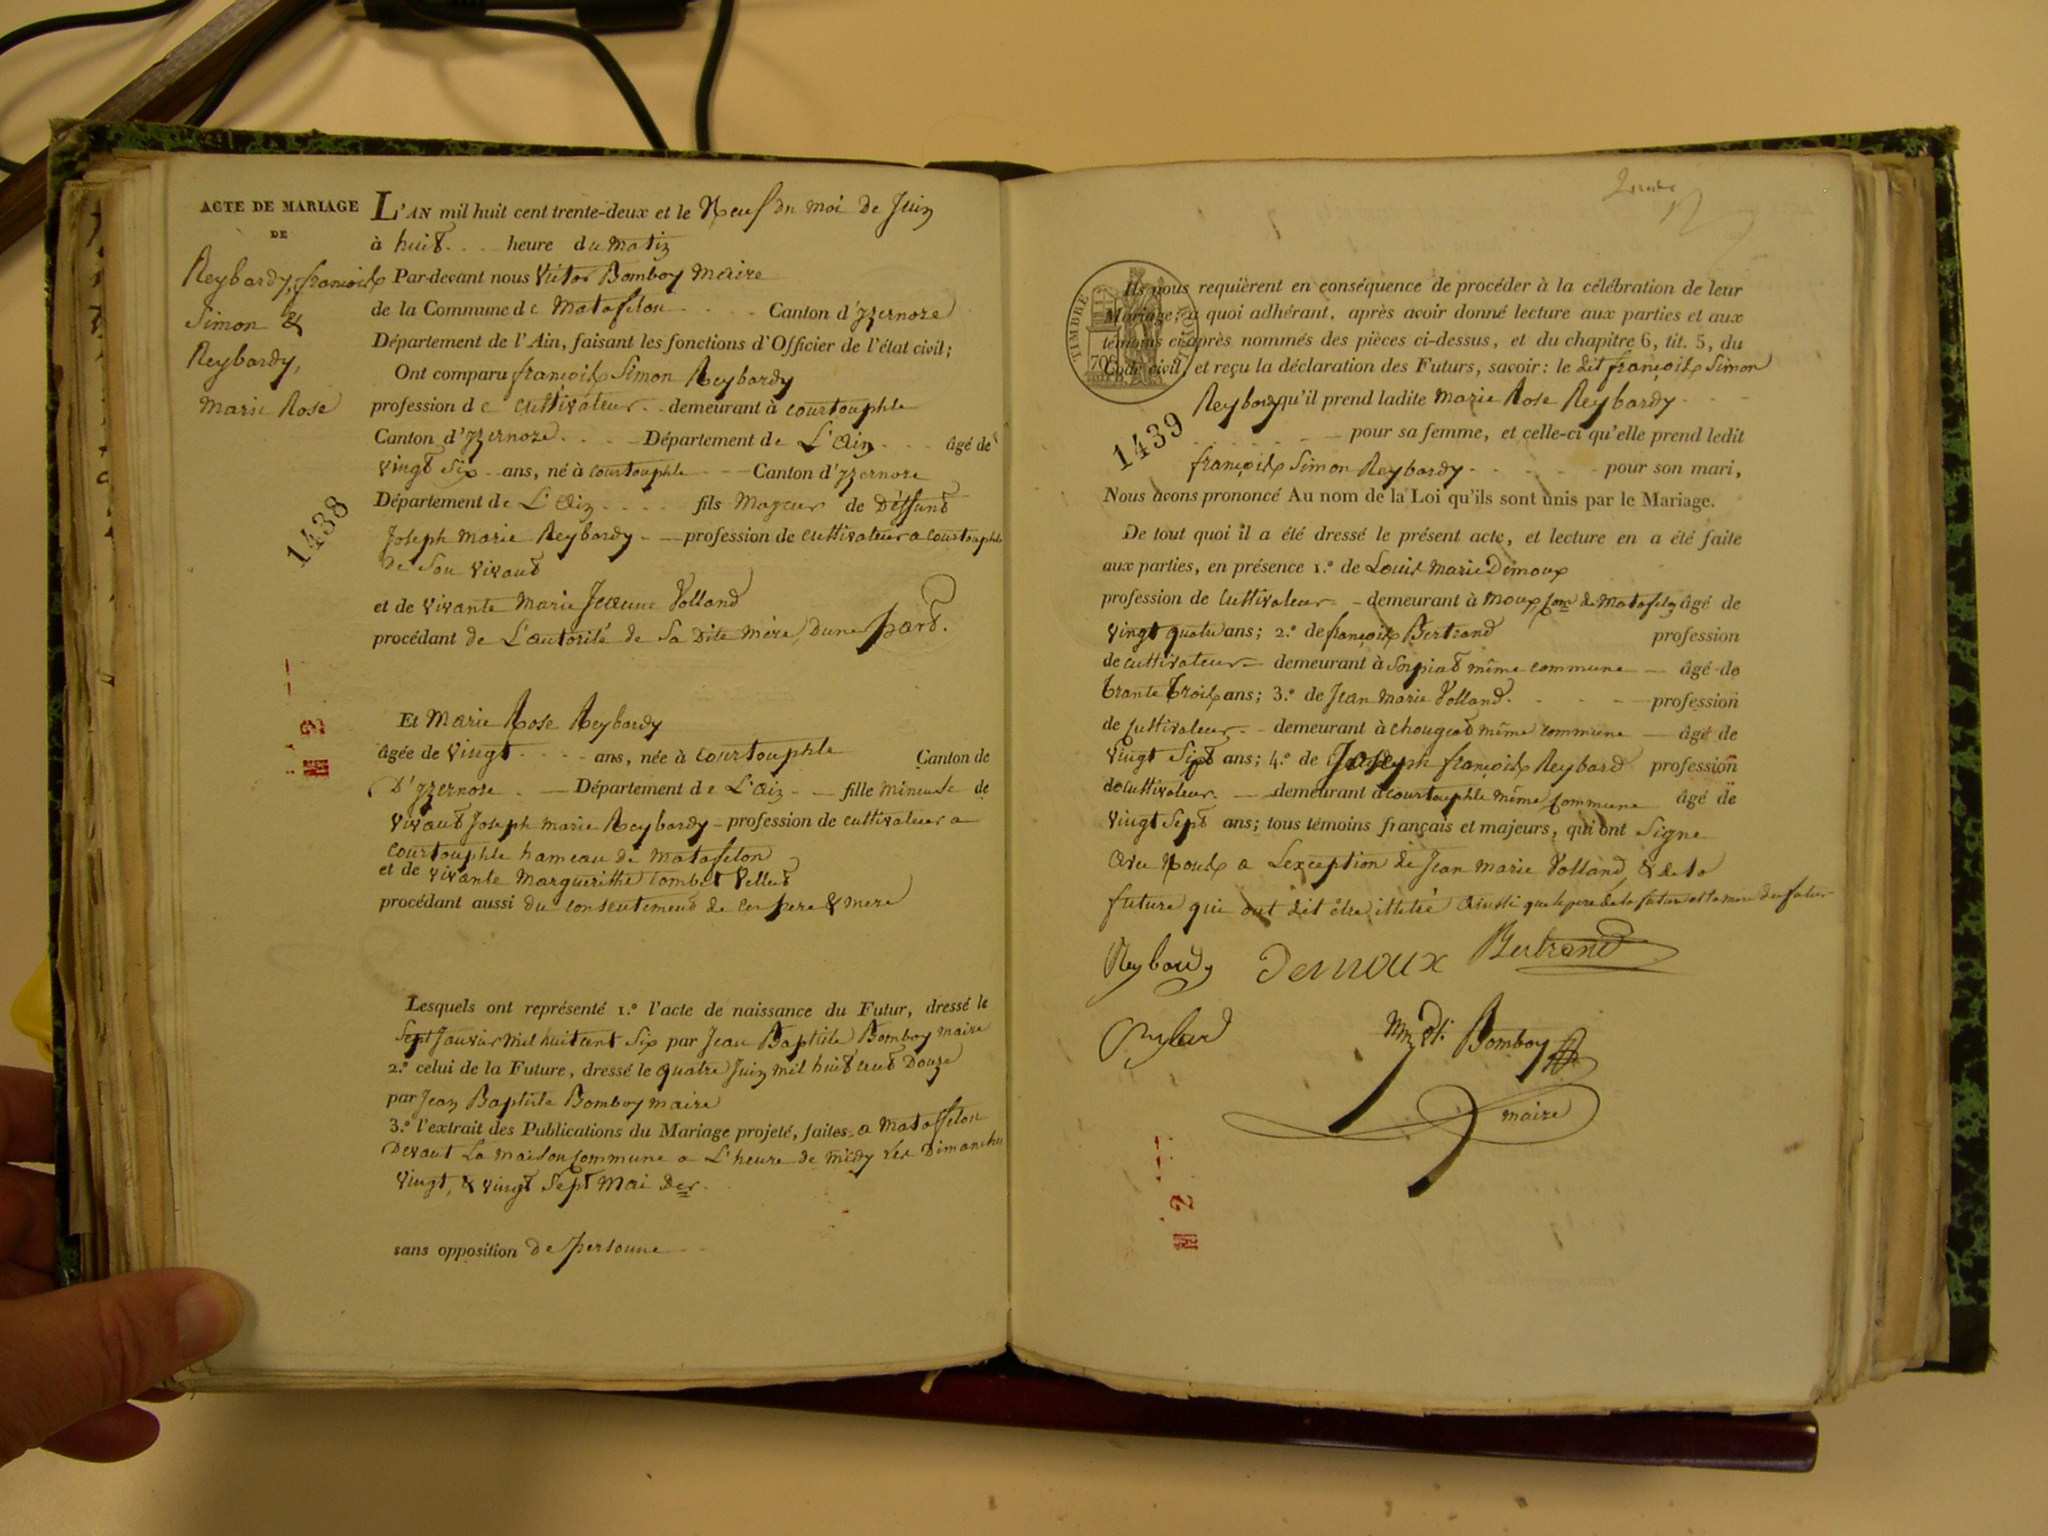 ACTE DE MARIAGE
DE
Reybardy, françois
Simon &
Reybardy,
Marie Rose
1438
L'AN mil huit cent trente-deux et le Neuf du moi de Juin
à huit heure du matin
Par-devant nous Victor Bomboy Maire
de la Commune de Matafelon Canton d'yzernore
Département de l'Ain, faisant les fonctions d'Officier de l'état civil;
Ont comparu françois Simon Reybardy
profession de cultivateur demeurant à courtouphle
Canton d'yzernore Département de L'Ain âgé de
vingt six ans, né à courtouphle Canton d'yzernore
Département de L'Ain fils Majeur de Déffunt
Joseph marie Reybardy profession de cultivateur a courtouphle
de Son vivant
et de vivante Marie Jeanne Volland
procédant de L'autorité de Sa Dite mère, Dune part.
Et Marie Rose Reybardy
âgée de vingt ans, née à courtouphle Canton de
D'yzernore Département de L'Ain fille mineure de
vivant Joseph marie Reybardy profession de cultivateur a
courtouphle hameau de matafelon
et de vivante Marguerithe Combet Vellet
procédant aussi du consentement de ces pere & mere
Lesquels ont représenté 1.º l'acte de naissance du Futur, dressé le
Sept Janvier mil huit cent Six par Jean Baptiste Bomboy maire
2.º celui de la Future, dressé le quatre Juin mil huit cent Douze
par Jean Baptiste Bomboy maire
3.º l'extrait des Publications du Mariage projeté, faites a matafelon
Devant La maison commune a L'heure de midy les Dimanches
vingt, & vingt Sept Mai der
sans opposition de personne
TIMBRE ROYAL
70
1439
Ils nous requièrent en conséquence de procéder à la célébration de leur
Mariage; a quoi adhérant, après avoir donné lecture aux parties et aux
témoins ci-après nommés des pièces ci-dessus, et du chapitre 6, tit. 5, du
Code civil, et reçu la déclaration des Futurs, savoir: le dit françois Simon
Reybardy qu'il prend ladite Marie Rose Reybardy
pour sa femme, et celle-ci qu'elle prend ledit
françois Simon Reybardy pour son mari,
Nous avons prononcé Au nom de la Loi qu'ils sont unis par le Mariage.
De tout quoi il a été dressé le présent acte, et lecture en a été faite
aux parties, en présence 1.º de Louis Marie Demoux
profession de Cultivateur demeurant à moux com de Matafelon âgé de
vingt quatre ans; 2.º de françois Bertrand profession
de cultivateur demeurant à Sorpiat même commune âgé de
trante trois ans; 3.º de Jean marie Volland profession
de Cultivateur demeurant à chougeat même commune âgé de
vingt Sept ans; 4.º de Joseph françois Reybard profession
de Cultivateur demeurant à courtouphle même commune âgé de
vingt Sept ans; tous témoins français et majeurs, qui ont Signe
avec Nous a Lexception de Jean marie Volland, & de la
future qui ont dit être illitéré ainsi que le pere de la future et la mere du futur
Reybardy Demoux Bertrand
Bomboy
maire